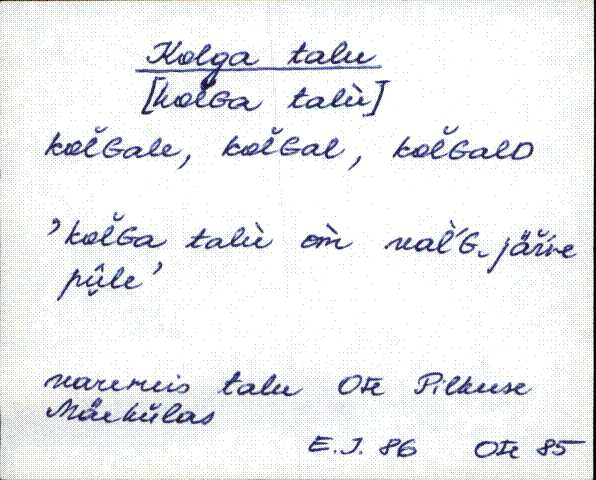 Kolga talu
[kol̆Ga talù]
kol̆Gale, kol̆Gal, kol̆GalD
’kol̆Ga talù om̀ val̆'G. järve
pü̂le’
varemeis talu Ote Pilkuse
Märküla​s
E.J. 86 Ote 85